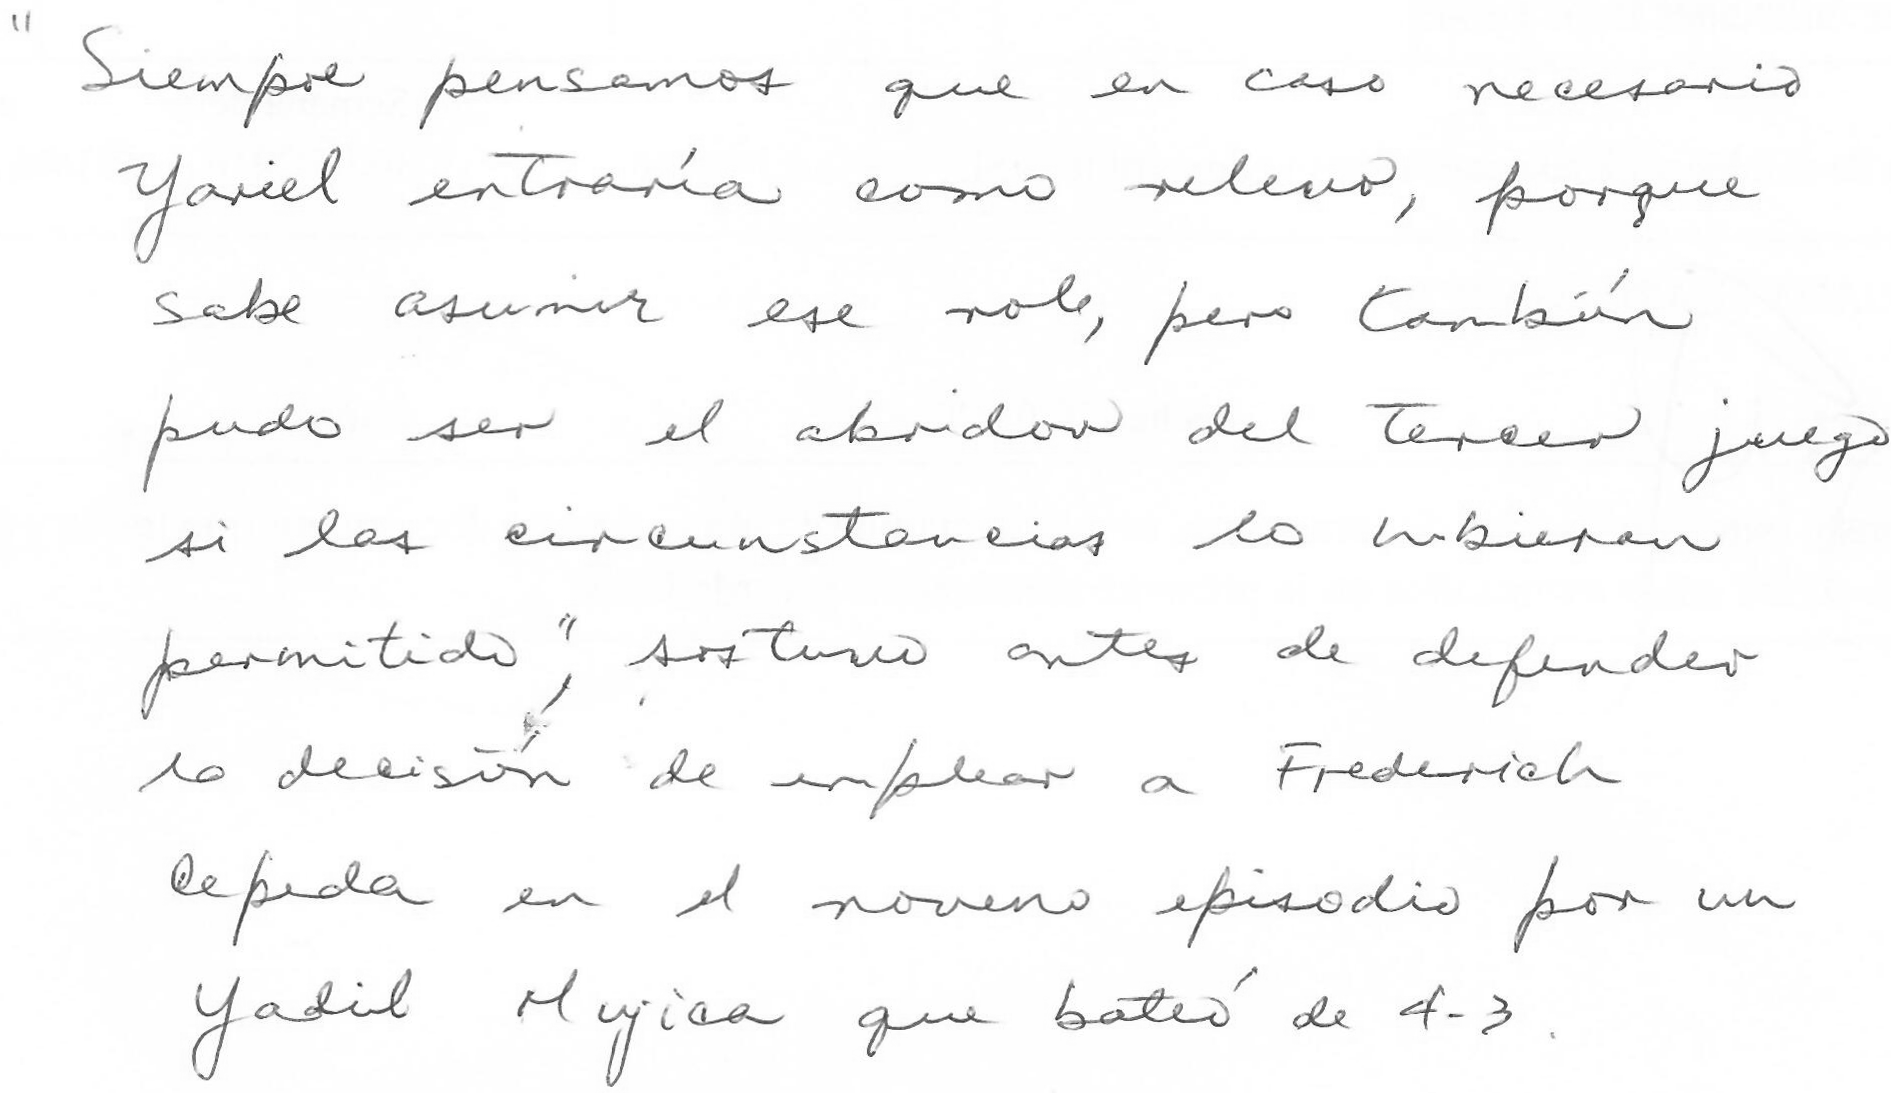 "Siempre pensamos que en caso necesario
Yariel entraría como relevo, porque
sabe asumir ese role, pero también
pudo ser el abridor del tercer juego
si las circunstancias lo hubieran
permitido", sostuvo antes de defender
la decisión de emplear a Frederich
Cepeda en el noveno episodio por un
Yadil Mujica que bateó de 4-3.